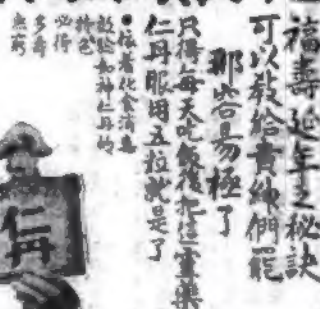 福壽延年之秘訣
可以教給貴婦們罷
那容易極了
只得每天吃飯後把這靈藥
仁丹服用五粒就是了
●依着化食消毒
效驗如神仁丹的
特色
必得
多壽
無窮
仁丹